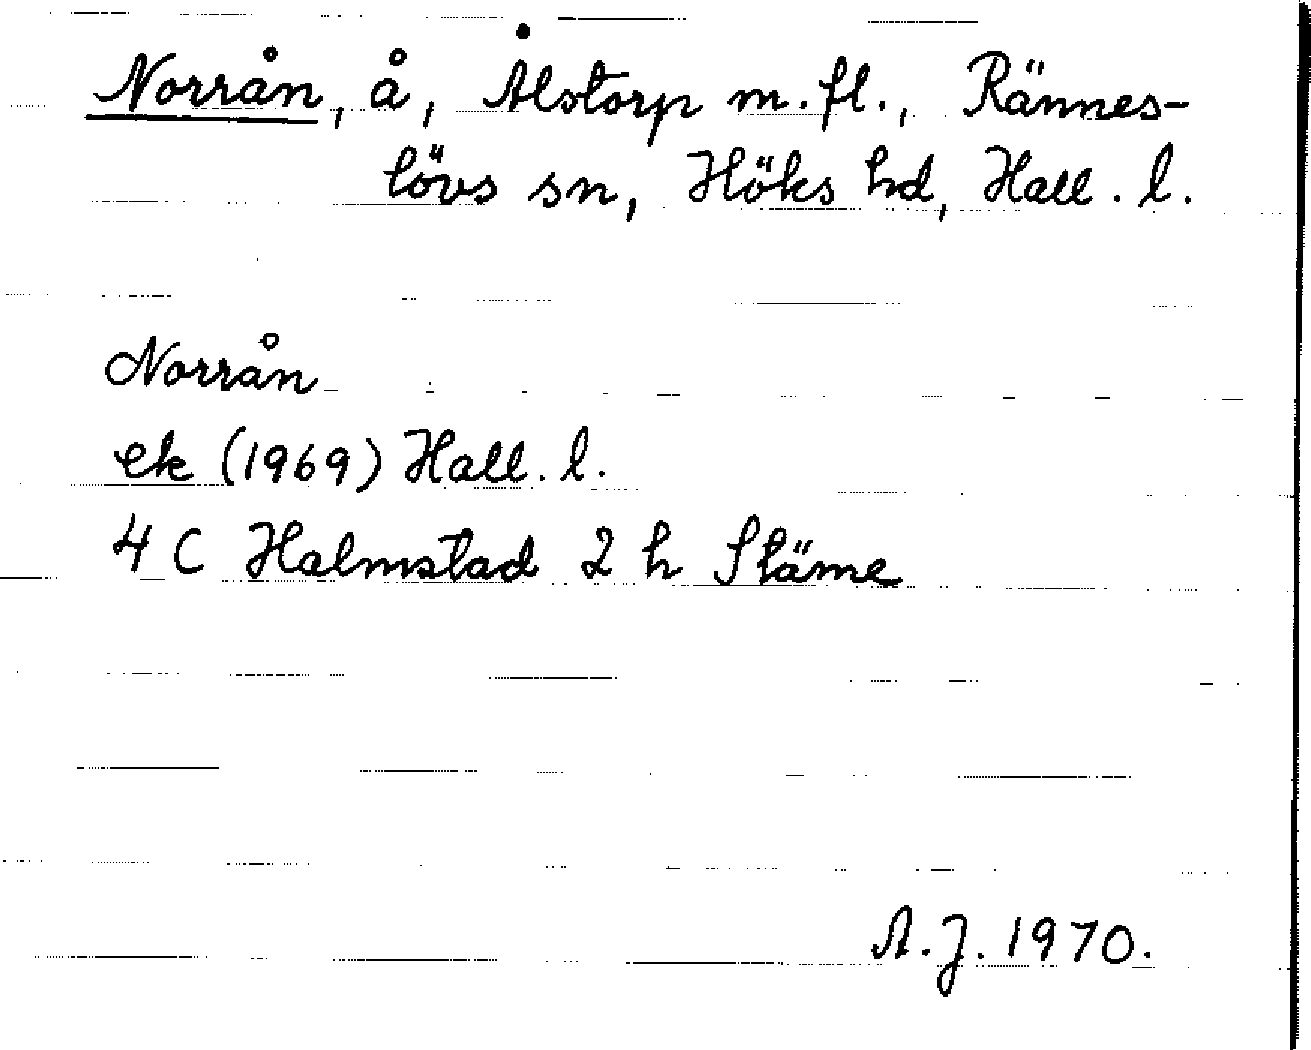 Norrån, å, Ålstorp m. fl., Rännes-
lövs sn, Höks hd, Hall. l.
Norrån
ek (1969) Hall. l.
4 C Halmstad 2 h Stäme
A. J. 1970.